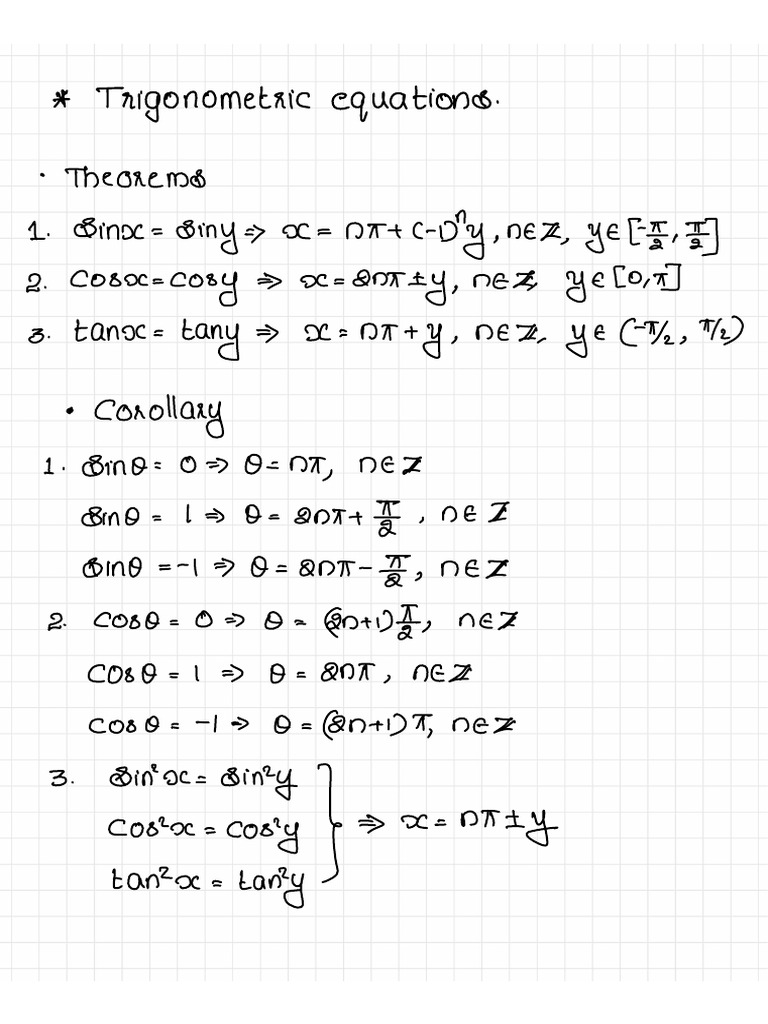 * Trigonometric equations.
· Theorems
1. Sinx = Siny ⇒ x = nπ + (-1)ⁿy, n∈ℤ, y∈[-π/2, π/2]
2. Cosx = Cosy ⇒ x = 2nπ ± y, n∈ℤ, y∈[0, π]
3. tanx = tany ⇒ x = nπ + y, n∈ℤ, y∈(-π/2, π/2)
· Corollary
1. Sinθ = 0 ⇒ θ = nπ, n∈ℤ
Sinθ = 1 ⇒ θ = 2nπ + π/2, n∈ℤ
Sinθ = -1 ⇒ θ = 2nπ - π/2, n∈ℤ
2. Cosθ = 0 ⇒ θ = (2n+1)π/2, n∈ℤ
Cosθ = 1 ⇒ θ = 2nπ, n∈ℤ
Cosθ = -1 ⇒ θ = (2n+1)π, n∈ℤ
3. Sin²x = Sin²y
Cos²x = Cos²y } ⇒ x = nπ ± y
tan²x = tan²y